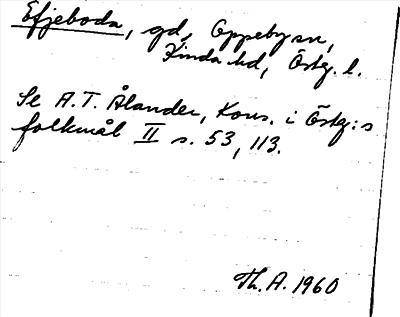 Efjeboda, gd, Oppeby sn,
Kinda hd, Östg. l.
Se A.T. Ålander, Kons. i Östg:s
folkmål II s. 53, 113.
Th. A. 1960